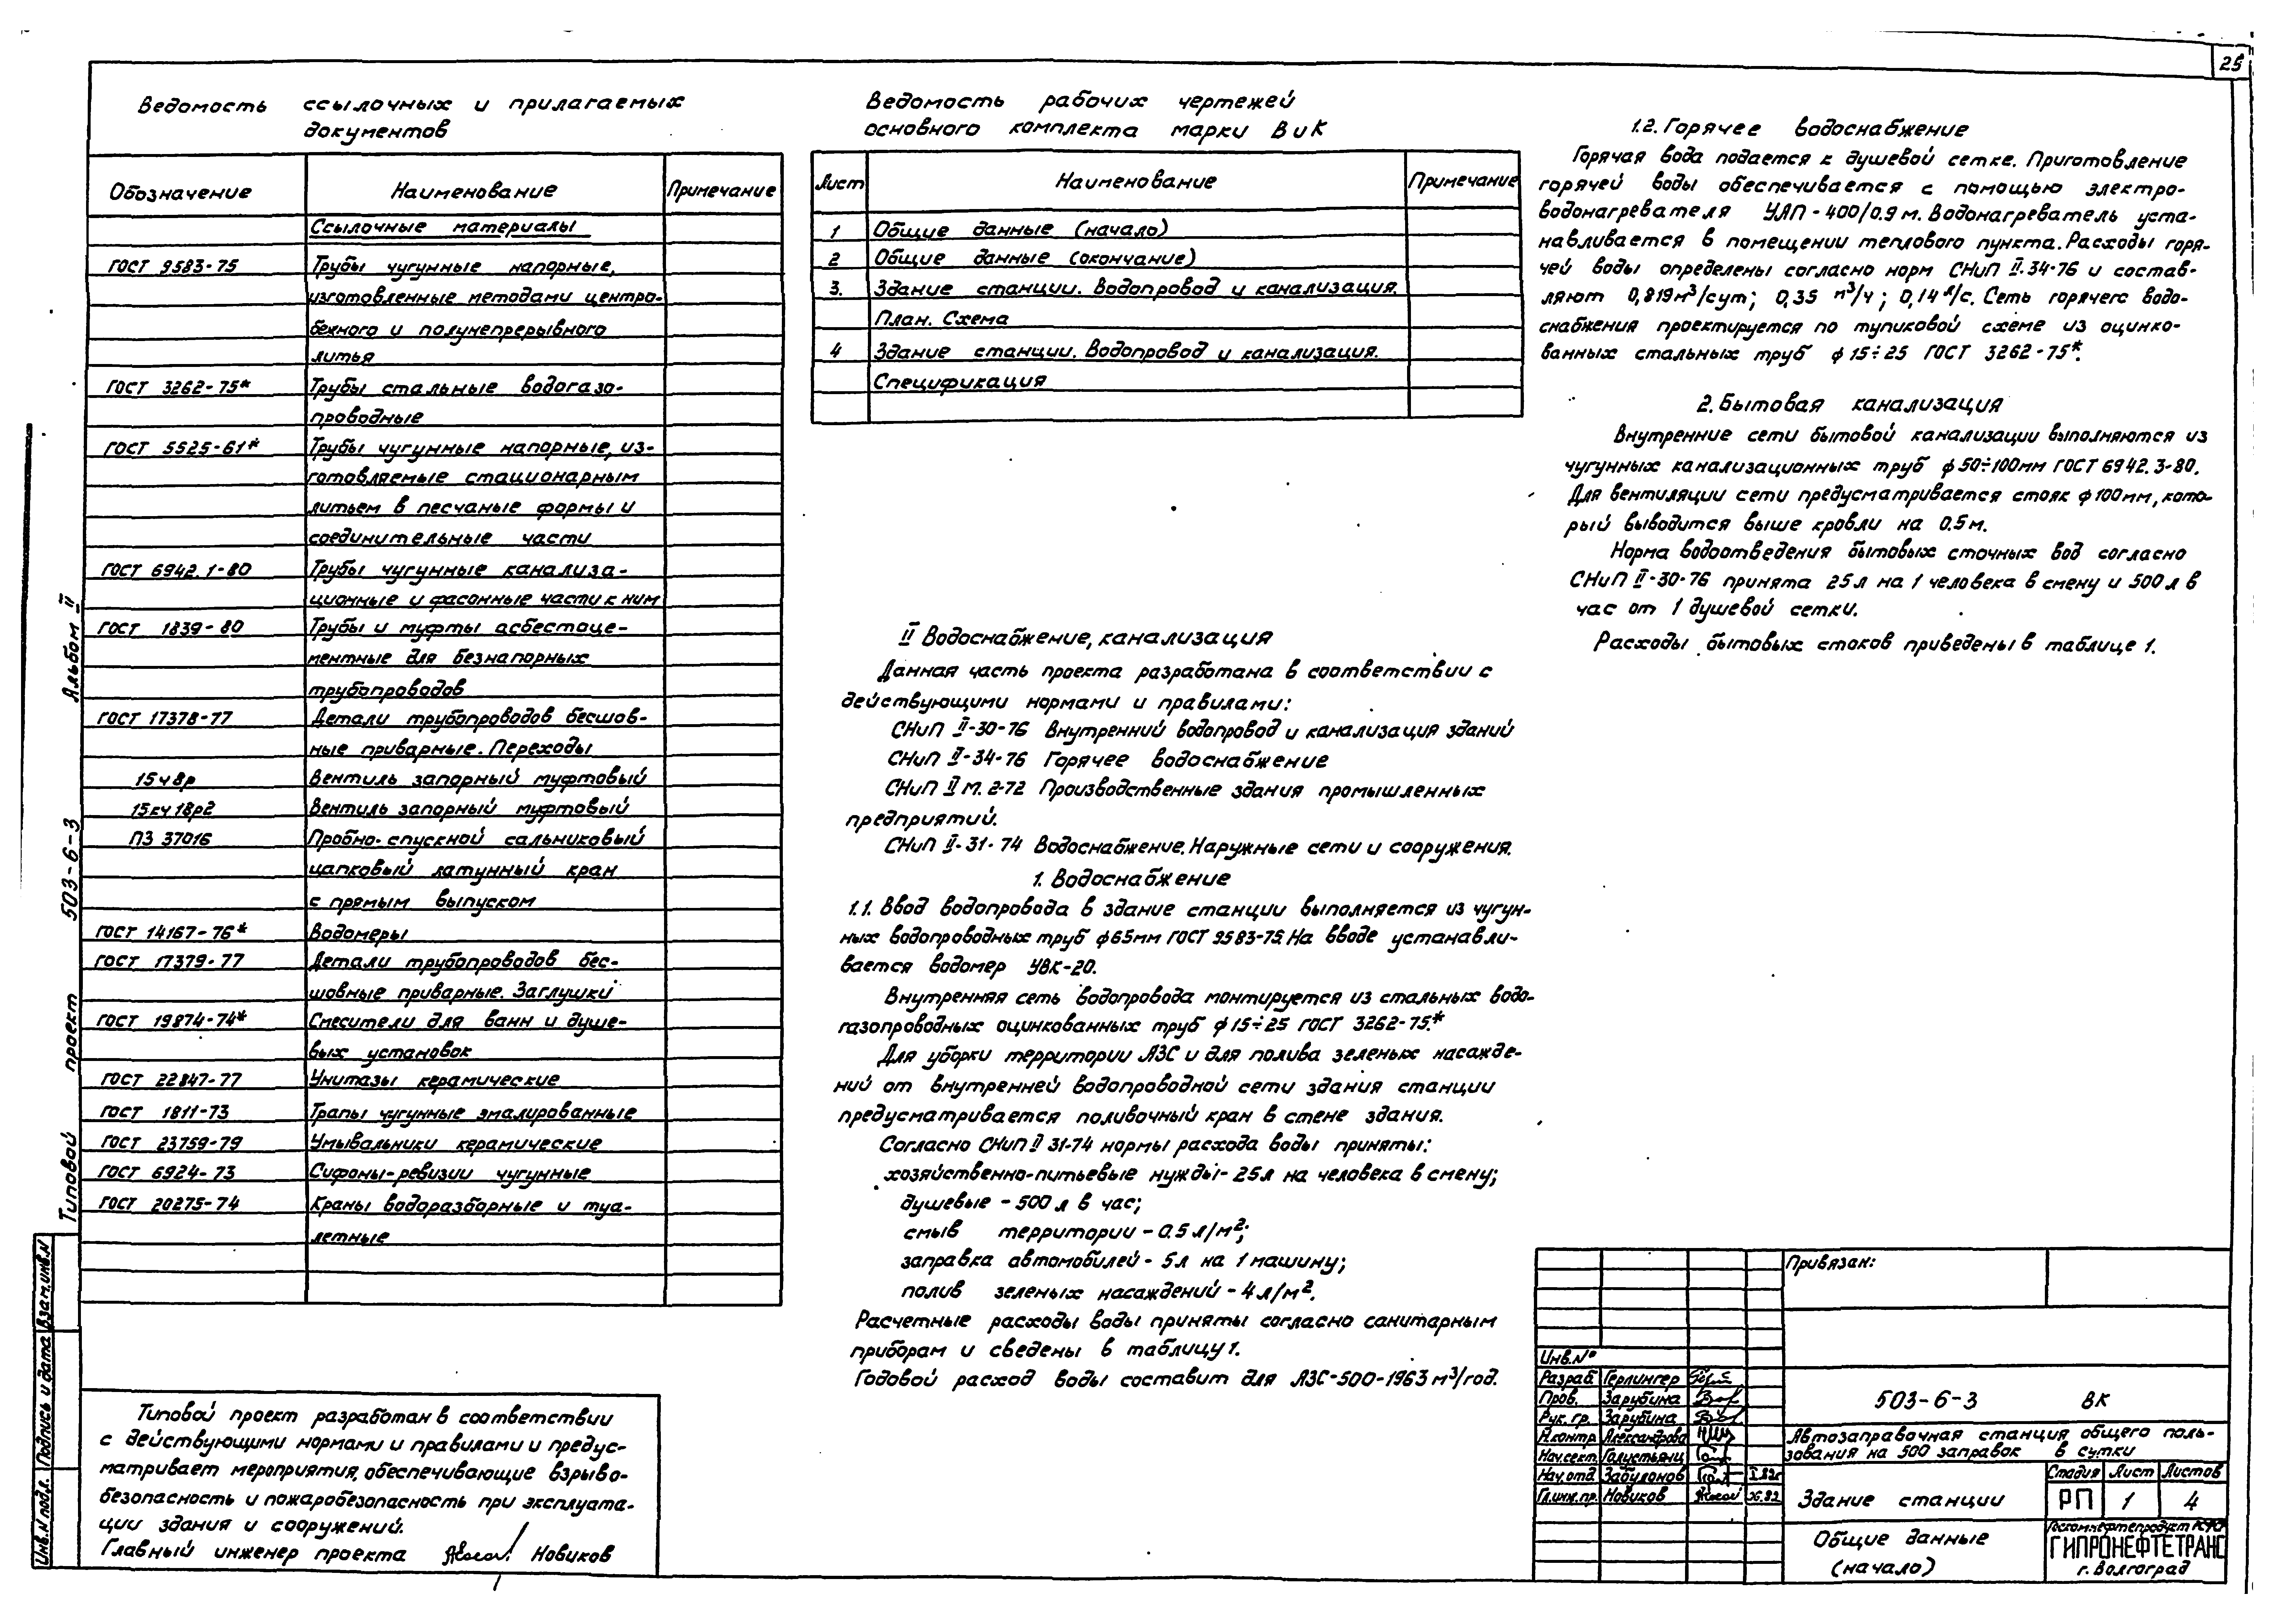 25
Ведомость ссылочных и прилагаемых
документов
Обозначение Наименование Примечание
Ссылочные материалы
ГОСТ 9583-75 Трубы чугунные напорные,
изготовленные методами центро-
бежного и полунепрерывного
литья
ГОСТ 3262-75* Трубы стальные водогазо-
проводные
ГОСТ 5525-61* Трубы чугунные напорные, из-
готовляемые стационарным
литьем в песчаные формы и
соединительные части
ГОСТ 6942.1-80 Трубы чугунные канализа-
ционные и фасонные части к ним
ГОСТ 1839-80 Трубы и муфты асбестоце-
ментные для безнапорных
трубопроводов
ГОСТ 17378-77 Детали трубопроводов бесшов-
ные приварные. Переходы
15ч8р Вентиль запорный муфтовый
15кч18р2 Вентиль запорный муфтовый
ПЗ 37016 Пробно-спускной сальниковый
цапковый латунный кран
с прямым выпуском
ГОСТ 14167-76* Водомеры
ГОСТ 17379-77 Детали трубопроводов бес-
шовные приварные. Заглушки
ГОСТ 19874-74* Смесители для ванн и душе-
вых установок
ГОСТ 22847-77 Унитазы керамические
ГОСТ 1811-73 Трапы чугунные эмалированные
ГОСТ 23759-79 Умывальники керамические
ГОСТ 6924-73 Сифоны-ревизии чугунные
ГОСТ 20275-74 Краны водоразборные и туа-
летные
Типовой проект разработан в соответствии
с действующими нормами и правилами и предус-
матривает мероприятия, обеспечивающие взрыво-
безопасность и пожаробезопасность при эксплуата-
ции здания и сооружений.
Главный инженер проекта Новиков
Ведомость рабочих чертежей
основного комплекта марки ВиК
Лист Наименование Примечание
1 Общие данные (начало)
2 Общие данные (окончание)
3. Здание станции. Водопровод и канализация.
План. Схема
4 Здание станции. Водопровод и канализация.
Спецификация
II Водоснабжение, канализация
Данная часть проекта разработана в соответствии с
действующими нормами и правилами:
СНиП II-30-76 Внутренний водопровод и канализация зданий
СНиП II-34-76 Горячее водоснабжение
СНиП II М. 2-72 Производственные здания промышленных
предприятий.
СНиП II-31-74 Водоснабжение. Наружные сети и сооружения.
1. Водоснабжение
1.1. Ввод водопровода в здание станции выполняется из чугун-
ных водопроводных труб ф65мм ГОСТ 9583-75. На вводе устанавли-
вается водомер УВК-20.
Внутренняя сеть водопровода монтируется из стальных водо-
газопроводных оцинкованных труб ф15÷25 ГОСТ 3262-75.*
Для уборки территории АЗС и для полива зеленых насажде-
ний от внутренней водопроводной сети здания станции
предусматривается поливочный кран в стене здания.
Согласно СНиП II 31-74 нормы расхода воды приняты:
хозяйственно-питьевые нужды- 25л на человека в смену;
душевые - 500 л в час;
смыв территории - 0.5 л/м²;
заправка автомобилей - 5л на 1 машину;
полив зеленых насаждений - 4 л/м².
Расчетные расходы воды приняты согласно санитарным
приборам и сведены в таблицу 1.
Годовой расход воды составит для АЗС-500-1963 м³/год.
1.2. Горячее водоснабжение
Горячая вода подается к душевой сетке. Приготовление
горячей воды обеспечивается с помощью электро-
водонагревателя УАП - 400/0.9 м. Водонагреватель уста-
навливается в помещении теплового пункта. Расходы горя-
чей воды определены согласно норм СНиП II-34-76 и состав-
ляют 0,819м³/сут; 0,35 м³/ч; 0,14 л/с. Сеть горячего водо-
снабжения проектируется по тупиковой схеме из оцинко-
ванных стальных труб ф 15÷25 ГОСТ 3262-75*.
2. Бытовая канализация
Внутренние сети бытовой канализации выполняются из
чугунных канализационных труб ф50÷100мм ГОСТ 6942.3-80.
Для вентиляции сети предусматривается стояк ф100мм, кото-
рый выводится выше кровли на 0.5м.
Норма водоотведения бытовых сточных вод согласно
СНиП II-30-76 принята 25л на 1 человека в смену и 500 л в
час от 1 душевой сетки.
Расходы бытовых стоков приведены в таблице 1.
Привязан:
Инв.№
Разраб. Герлингер
Пров. Зарубина
Рук. гр. Зарубина
Н.контр. Александрова
Нач.сект. Галустьянц
Нач.отд. Забулонов
Гл.инж.пр. Новиков
503-6-3 ВК
Автозаправочная станция общего поль-
зования на 500 заправок в сутки
Здание станции
Стадия Лист Листов
РП 1 4
Общие данные
(начало)
ГИПРОНЕФТЕТРАНС
г. Волгоград
Типовой проект 503-6-3 Альбом II
Инв.№ подл. Подпись и дата Взам.инв.№